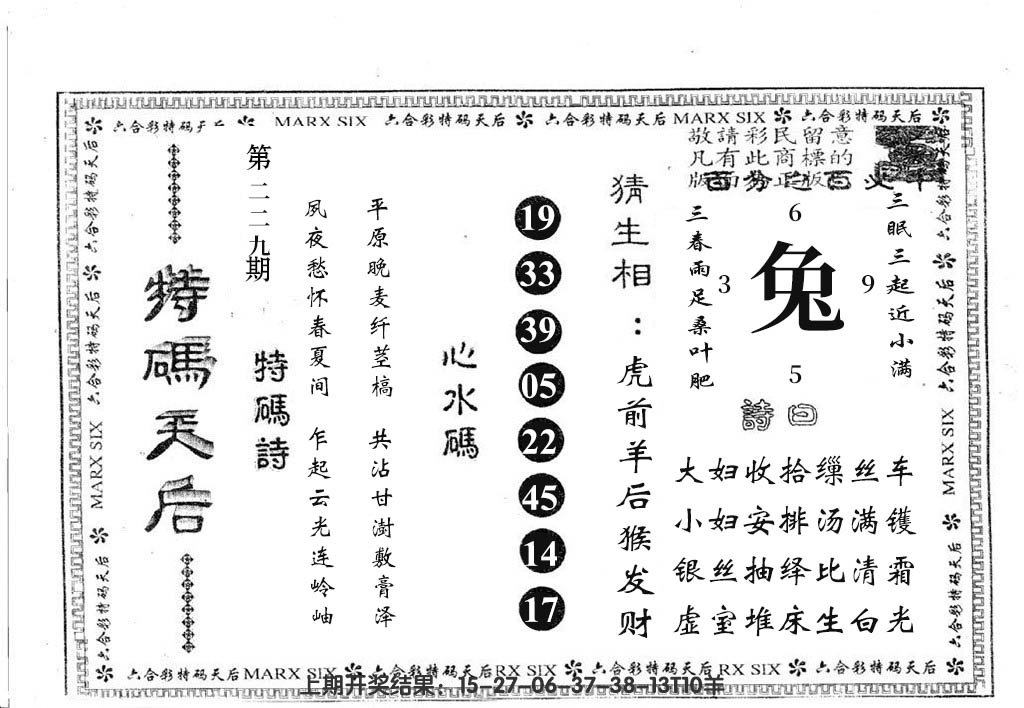 六合彩特码天后 MARX SIX 六合彩特码天后 六合彩特码天后 MARX SIX 六合彩特码天后
敬請彩民留意
凡有此商標的
版面为正版
特碼天后
第二二九期
特碼詩
夙夜愁怀春夏间 乍起云光连岭岫
平原晚麦纤茎槁 共沾甘澍敷膏泽
心水碼
19
33
39
05
22
45
14
17
猜生相：虎前羊后猴发财
三春雨足桑叶肥
6
3 兔 9
5
三眠三起近小满
詩曰
大妇收拾缫丝车
小妇安排汤满镬
银丝抽绎比清霜
虚室堆床生白光
六合彩特码天后 MARX SIX 六合彩特码天后
六合彩特码天后 MARX SIX 六合彩特码天后
六合彩特码天后 MARX SIX 六合彩特码天后 RX SIX 六合彩特码天后 RX SIX 六合彩特码天后
上期开奖结果：15-27-06-37-38-13T10羊